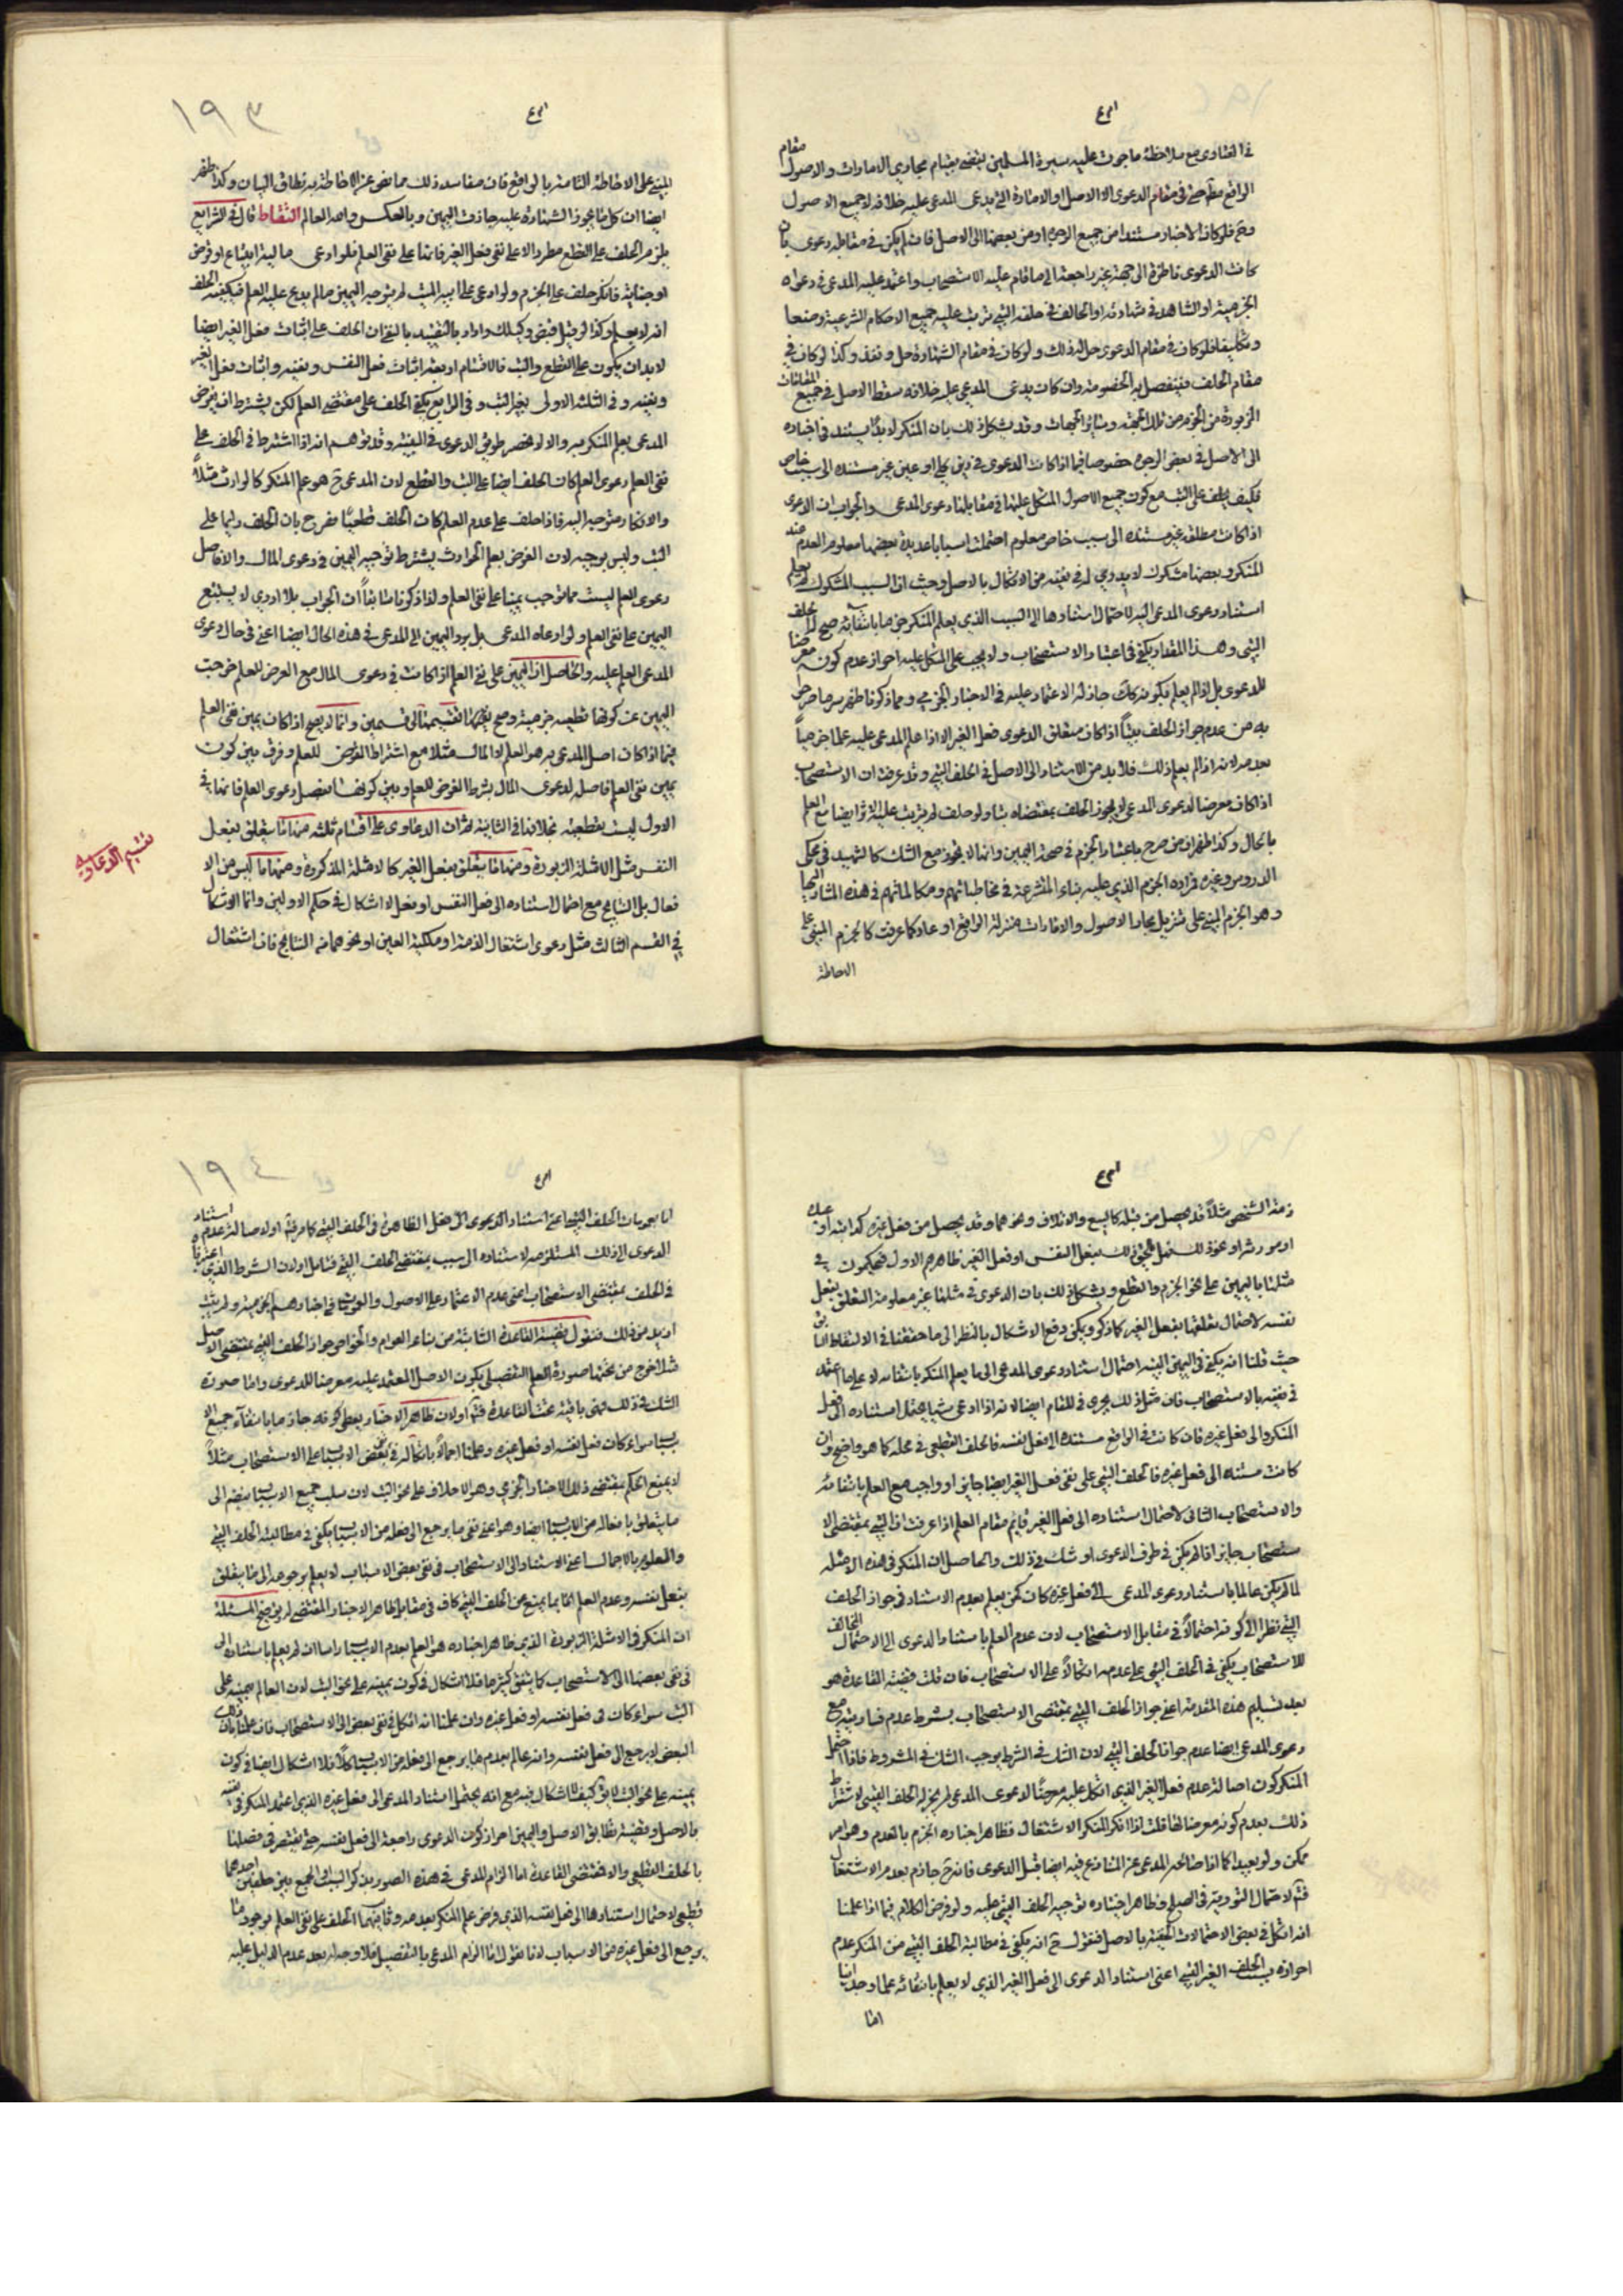 في الفتاوى مع ملاحظة ما جرت عليه سيرة المسلمين يقتضي بقيام مجاري الامارات والاصول مقام
الواقع حتى في مقام الدعوى الا الاصل او الامارة التي يدعى المدعى عليه خلافه لا جميع الاصول
فلو كان الاخبار مستندا من جميع الوجوه او من بعضها الى الاصل فان لم يكن في مقابله دعوى بان
كانت الدعوى ناظرة الى جهة غير راجعة الى ما قام عليه الاستصحاب واعتمد عليه المدعى في دعواه
الجزمية او الشاهد في شهادته او الحالف في حلفه البتي ترتب عليه جميع الاحكام الشرعية وضعا
وتكليفا فلو كان في مقام الدعوى حل له ذلك ولو كان في مقام الشهادة حل ونفذ وكذا لو كان في
مقام الحلف فينفصل به الخصومة وان كان يدعى المدعى عليه خلافه سقط الاصل في جميع المقامات
المزبورة من الجزم من تلك الجهة وسائر الجهات وقد يشكل ذلك بان المنكر لا بد ان يستند في اخباره
الى الاصل في بعض الوجوه خصوصا فيما اذا كانت الدعوى في دين كلي او عين غير مستند الى سبب خاص
فكيف يحلف على البت مع كون جميع الاصول المتكل عليها في مقابلها دعوى المدعى والجواب ان الدعوى
اذا كانت مطلقة غير مستندة الى سبب خاص معلوم احتملت اسبابا عديدة بعضها معلوم العدم عند
المنكر وبعضها مشكوك لا بد في نفيه من الاتكال بالاصل وحيث ان السبب المشكوك لم يعلم
استناد دعوى المدعى اليه لاحتمال استنادها الى السبب الذي يعلم المنكر جزما بانتفائه صح له حلف
البتي وهذا المقدار يكفي في اعتبار الاستصحاب ولا يجب على المتكل عليه احراز عدم كونه معرضا
للدعوى بل اذا لم يعلم بكونه كك جاز له الاعتماد عليه في الاخبار الجزمي ومما ذكرنا ظهر سر ما صرحوا
به من عدم جواز الحلف بتياً اذا كان متعلق الدعوى فعل الغير الا اذا علم المدعى عليه علما جزمياً
بعدمه لانه اذا لم يعلم ذلك فلا بد من الاستناد الى الاصل في الحلف البتي وقد عرفت ان الاستصحاب
اذا كان معرضا لدعوى المدعى لا يجوز الحلف بمقتضاه بتا ولو حلف لم يترتب عليه الاثر ايضا مع العلم
بالحال وكذا ظهر ان من صرح باعتبار الجزم في صحة اليمين وانها لا يجوز مع الشك كالشهيد في محكي
الدروس وغيره فمراده الجزم الذي عليه بناء المتشرعة في مخاطباتهم ومكالماتهم في هذه المشار اليها
وهو الجزم المبني على تنزيل مجاري الاصول والامارات منزلة الواقع او عاد كما عرفت كالجزم المبني على
الاحاطة
١٩٣
المبني على الاحاطة التامة بالواقع فان مفاسد ذلك مما نص عن الاحاطة به نطاق البيان وكذا ظهر
ايضا ان كلما يجوز الشهادة عليه جازت اليمين وبالعكس والله العالم التقاط قال في الشرايع
يلزم الحلف على القطع مطردا الا على نفي فعل الغير فانها على نفي العلم فلو ادعى عليه ابتياع او قرض
او جناية فانكر حلف على الجزم ولو ادعى على ابيه الميت لم يتوجه اليمين ما لم يدع عليه العلم فيكفيه الحلف
انه لا يعلم وكذا لو قيل قبض وكيلك واراد بالتقييد بالنفي ان الحلف على اثبات فعل الغير ايضا
لا بد ان يكون على القطع والبت فالاقسام اربعة اثبات فعل النفس ونفيه واثبات فعل الغير
ونفيه وفي الثلثة الاولى يجب البت وفي الرابع يكفي الحلف على مقتضى العلم لكن يشترط ان يفرض
المدعى بعلم المنكر به والا لانحصر طريق الدعوى في البينة وقد يتوهم انه اذا اشترط في الحلف على
نفي العلم دعوى العلم كان الحلف ايضا على البت والقطع لان المدعى ح هو علم المنكر كالوارث مثلاً
والانكار متوجه اليه فاذا حلف على عدم العلم كان الحلف قطعيًا فصرح بان الحلف دايما على
البت وليس بوجيه لان الغرض بعلم الحوادث يشترط توجيه اليمين في دعوى المال والافاصل
دعوى العلم ليست مما توجب يمينا على نفي العلم ولذا ذكرنا سابقاً ان الجواب بلا ادري لا يستتبع
اليمين على نفي العلم ولو ادعاه المدعى بل يرد اليمين الى المدعى في هذه الحال ايضا اعني في حال دعوى
المدعى العلم عليه والحاصل ان اليمين على نفي العلم اذا كانت في دعوى المال مع الغرض للعلم خرجت
اليمين عن كونها قطعية جزمية وصح بجهة تقسيمها الى قسمين وانما لا يصح اذا كان يمين نفي العلم
فيما اذا كان اصل المدعى به هو العلم لا المال مثلا مع اشتراط الغرض للعلم وفرق بين كون
يمين نفي العلم فاصلة لدعوى المال بشرط الغرض للعلم وبين كونها تفصل دعوى العلم فانها في
الاول ليست بقطعية بخلافها في الثانية ثم ان الدعاوى على اقسام ثلثه منها ما يتعلق بفعل
النفس مثل الامثلة المزبورة ومنها ما يتعلق بفعل الغير كالامثلة المذكورة ومنها ما ليس من الا
فعال بل النتايج مع احتمال استناده الى فعل النفس او فعل لا اشكال في حكم الاولين وانما الاشكال
في القسم الثالث مثل دعوى اشتغال الذمة او ملكية العين او نحوهما من النتايج فان اشتغال
تقسيم الدعاوي
ذمة الشخص مثلاً قد يحصل من قبله كالبيع والاتلاف ونحوهما وقد يحصل من فعل غيره كدابته او عبده
او مورثه او نحو ذلك فهل يلحق ذلك بفعل النفس او فعل الغير ظاهرهم الاول فيحكمون في
مثلها باليمين على نحو الجزم والقطع ويشكل ذلك بان الدعوى في مثلها غير معلومة التعلق بفعل
نفسه لاحتمال تعلقها بفعل الغير كما ذكر ويمكن دفع الاشكال بالنظر الى ما حققنا في الالتقاط السابق
حيث قلنا انه يكفي في اليمين البتيه احتمال استناد دعوى المدعى الى ما يعلم المنكر بانتفائه لا على ما اعتمد
في نفيه بالاستصحاب فان مثل ذلك يجري في المقام ايضا لانه اذا ادعى شيئا يحتمل استناده الى فعل
المنكر والى فعل غيره فان كانت في الواقع مستندة الى فعل نفسه فالحلف القطعي في محله كما هو واضح وان
كانت مستندة الى فعل غيره فالحلف البتي على نفي فعل الغير ايضا جايز او واجب مع العلم بانتفائه
والاستصحاب النافي لاحتمال استناده الى فعل الغير قايم مقام العلم اذا عرفت ان البتي بمقتضى الا
ستصحاب جايز اذا لم يكن في طرف الدعوى او شك في ذلك والحاصل ان المنكر في هذه الامثلة
لما لم يكن عالما باستناد دعوى المدعى الى فعل غيره كان كمن يعلم بعدم الاستناد في جواز الحلف
البتي نظرا الى كونه احتمالاً في مقابل الاستصحاب لان عدم العلم باستناد الدعوى الى الاحتمال المخالف
للاستصحاب يكفي في الحلف البتي على عدمه اتكالاً على الاستصحاب فان قلت قضية القاعدة هو
بعد تسليم هذه المقدمة اعني جواز الحلف البتي بمقتضى الاستصحاب بشرط عدم معارضته مع
دعوى المدعى ايضا عدم جواز الحلف البتي لان الشك في الشرط يوجب الشك في المشروط فاذا احتمل
المنكر كون اصالة عدم فعل الغير الذي اتكل عليه معرضًا لدعوى المدعى لم يجز له الحلف البتي لاشتراط
ذلك بعدم كونه معرضا لها قلت اذا انكر المنكر الاشتغال فظاهر اخباره الجزم بالعدم وهو امر
ممكن ولو بعيدا كما اذا صالح المدعى عن المتنازع فيه ايضا قبل الدعوى فانه ح جازم بعدم الاشتغال
نعم لاحتمال التورية في الصلح وظاهر اخباره توجيه الحلف البتي عليه ولو فرض الكلام فيما اذا علمنا
انه اتكل في بعض الاحتمالات الخفية بالاصل فنقول ح انه يكفي في مطالبة الحلف البتي من المنكر عدم
احراز سبب الحلف الغير البتي اعني استناد الدعوى الى فعل الغير الذي لا يعلم بانتفائه علما وجدانيا
اما
١٩٤
اما بجريان الحلف البتي اعني استناد الدعوى الى فعل الظاهر في الحلف البتي كما مر فيه او لاصالة عدم استناد
الدعوى الى ذلك المستلزمه لاستناده الى سبب يقتضى الحلف البتي فتامل او لان الشرط الذي اعتبرنا
في الحلف بمقتضى الاستصحاب اعنى عدم الاعتماد على الاصول في اخبارهم الجزمية ولم يثبت
ازيد من ذلك فنقول قضية القاعدة الثابتة من بناء العوام والخواص جواز الحلف البتي بمقتضى الاصل
مثلا خرج من تحتها صورة العلم التفصيلي بكون الاصل المعتمد عليه معرضا للدعوى واما صورة
الشك في ذلك فهي باقية تحت القاعدة فتم او لان ظاهر الاخبار يعطى كونه جازما بانتفاء جميع الا
سباب سواء كان فعل نفسه او فعل غيره وعلمنا اجمالاً باتكاله في بعض الاسباب على الاستصحاب مثلاً
لا يمنع الحكم بمقتضى ذلك الاخبار الجزمي وهو الاحلاف على نحو البت لان سلب جميع الاسباب ينضم الى
ما يتعلق بافعاله من الاسباب ايضا وهو اعني نفي ما يرجع الى فعله من الاسباب يكفي في مطالبة الحلف البتي
والمعلوم بالاجمال اعني الاستناد الى الاستصحاب في نفي بعض الاسباب لا يعلم برجوعه الى ما يتعلق
بفعل نفسه وعدم العلم انما يمنع من الحلف البتي كاف في مقابل ظاهر الاخبار المقتضى له توضيح المسئلة
ان المنكر في الامثلة المزبورة الذي ظاهر اخباره هو العلم بعدم الاسباب راسا ان لم يعلم باستناده الى
في نفي بعضها الى الاستصحاب كما يتفق كثيرا فلا اشكال في كون يمينه على نحو البت لان العالم يمينه على
البت سواء كان في فعل نفسه او فعل غيره وان علمنا انه اتكل في نفي بعض الى الاستصحاب فان علمنا بان هذا
البعض لا يرجع الى فعل نفسه وانه عالم بعدم ما يرجع الى فعله من الاسباب كلاً فلا اشكال ايضا في كون
يمينه على نحو البت لا يق كيف لا اشكال فيه مع انه يحتمل استناد المدعى الى فعل غيره الذي اعتمد المنكر في نفيه
بالاصل وقضية تطابق الاصل واليمين احراز كون الدعوى راجعة الى فعل نفسه حتى يقتصر في فصلها
بالحلف القطعي والا فمقتضى القاعدة اما الزام المدعى في هذه الصور بذكر السبب او الجمع بين حلفين احدهما
قطعي لاحتمال استنادها الى فعل نفسه الذي فرض علم المنكر بعدمه وثانيهما الحلف على نفي العلم بوجود ما
يرجع الى فعل غيره من الاسباب لانا نقول اما الزام المدعى بالتفصيل فلا وجه له بعد عدم الدليل عليه